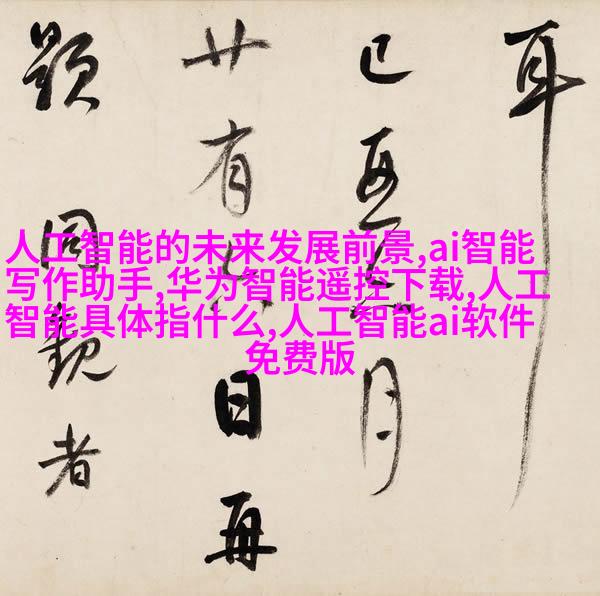 耳
己月
廿有日再
題同觀者
人工智能的未来发展前景,ai智能
写作助手,华为智能遥控下载,人工
智能具体指什么,人工智能ai软件
免费版